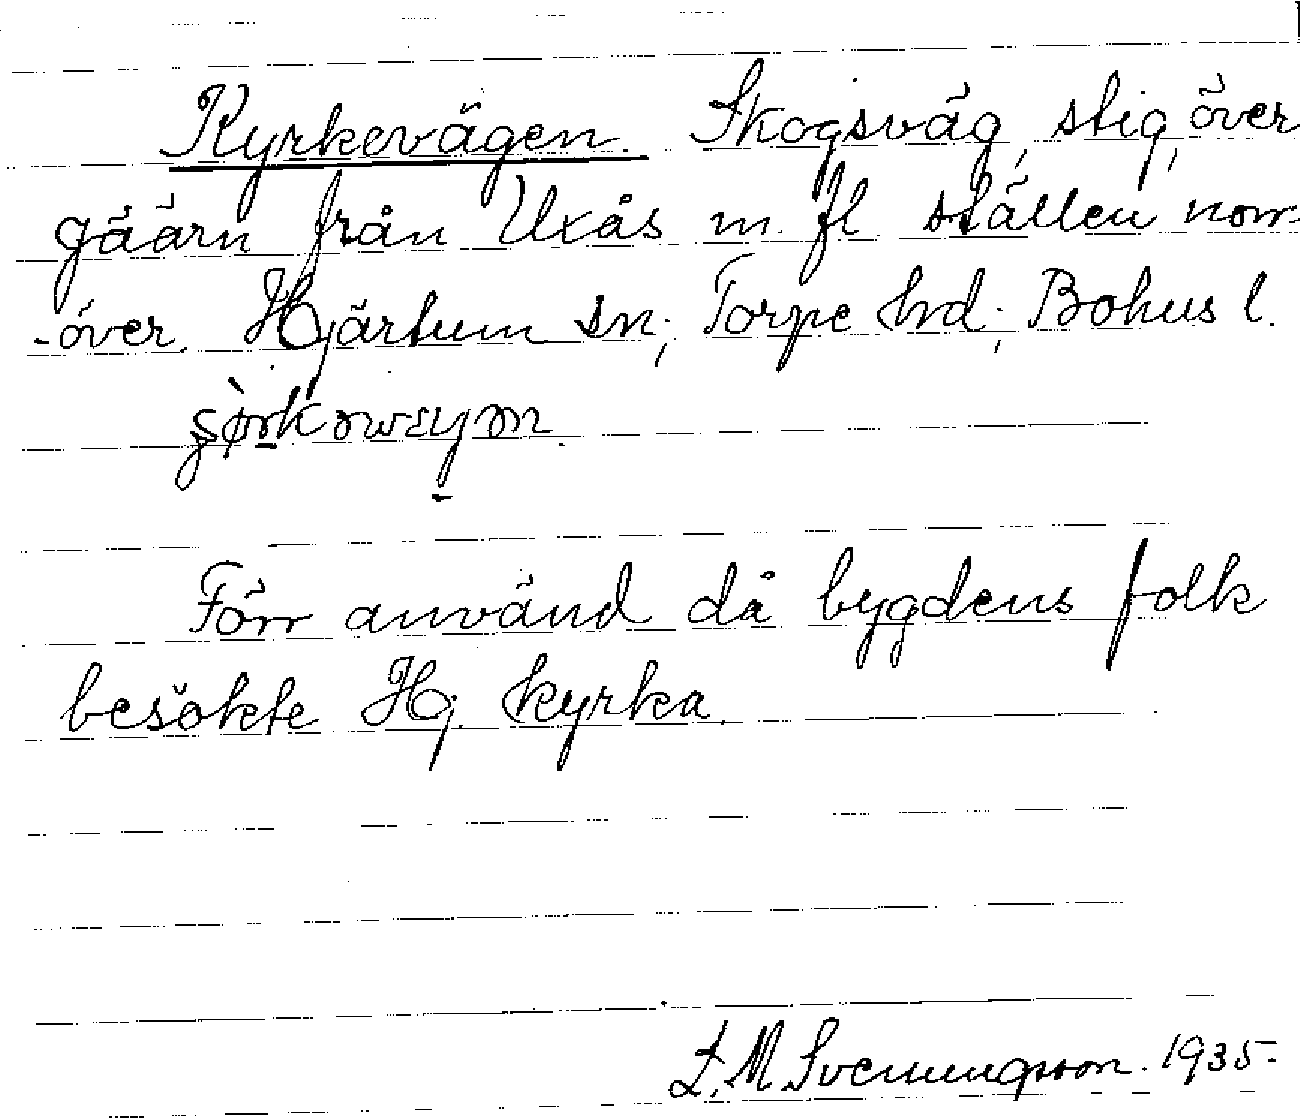 Kyrkevägen. Skogsväg, stig, över
gäärn från Uxås m. fl ställen norr
-över. Hjärtum sn; Torpe hd; Bohus l.
Förr använd då bygdens folk
besökte Hj. kyrka.
L. M. Svenningsson. 1935.